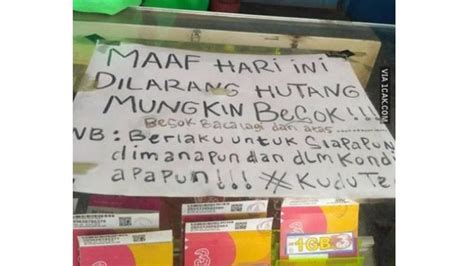 MAAF HARI INI
DILARANG HUTANG
MUNGKIN BESOK!!!
BESOK BACA lagi dari atas
NB: BERlaku untuk SIAPAPUN
dimanapun dan dLM Kondi
apapun!!! #KuduTe
3
3
1GB 3
VIA 1CAK.COM